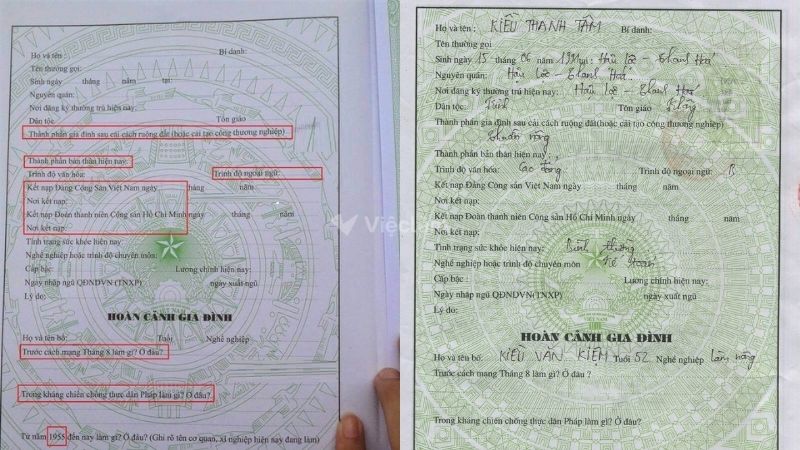 Họ và tên : Bí danh:
Tên thường gọi:
Sinh ngày tháng năm tại:
Nguyên quán:
Nơi đăng ký thường trú hiện nay:
Dân tộc Tôn giáo
Thành phần gia đình sau cải cách ruộng đất(hoặc cải tạo công thương nghiệp)
Thành phần bản thân hiện nay:
Trình độ văn hóa: Trình độ ngoại ngữ:
Kết nạp Đảng Cộng Sản Việt Nam ngày tháng năm
Nơi kết nạp:
Kết nạp Đoàn thanh niên Cộng sản Hồ Chí Minh ngày tháng năm
Nơi kết nạp:
Tình trạng sức khỏe hiện nay
Nghề nghiệp hoặc trình độ chuyên môn:
Cấp bậc: Lương chính hiện nay:
Ngày nhập ngũ QĐNDVN (TNXP) ngày xuất ngũ
Lý do:
HOÀN CẢNH GIA ĐÌNH
Họ và tên bố: Tuổi Nghề nghiệp
Trước cách mạng Tháng 8 làm gì? Ở đâu?
Trong kháng chiến chống thực dân Pháp làm gì? Ở đâu?
Từ năm 1955 đến nay làm gì? Ở đâu? (Ghi rõ tên cơ quan, xí nghiệp hiện nay đang làm)
Họ và tên : KIỀU THANH TÂM Bí danh:
Tên thường gọi
Sinh ngày 15 tháng 06 năm 1991 tại: Hậu Lộc - Thanh Hoá
Nguyên quán: Hậu Lộc - Thanh Hoá
Nơi đăng ký thường trú hiện nay: Hậu Lộc - Thanh Hoá
Dân tộc: Kinh Tôn giáo Không
Thành phần gia đình sau cải cách ruộng đất(hoặc cải tạo công thương nghiệp)
Thuần nông
Thành phần bản thân hiện nay
Trình độ văn hóa: Cao đẳng Trình độ ngoại ngữ: B
Kết nạp Đảng Cộng sản Việt Nam ngày tháng năm
Nơi kết nạp:
Kết nạp Đoàn thanh niên Cộng sản Hồ Chí Minh ngày tháng năm
Nơi kết nạp:
Tình trạng sức khỏe hiện nay: Bình thường
Nghề nghiệp hoặc trình độ chuyên môn Kế toán
Cấp bậc : Lương chính hiện nay:
Ngày nhập ngũ QĐNDVN(TNXP) ngày xuất ngũ
Lý do:
HOÀN CẢNH GIA ĐÌNH
Họ và tên bố: KIỀU VĂN KIỆM Tuổi 52 Nghề nghiệp làm nông
Trước cách mạng Tháng 8 làm gì? Ở đâu ?
Trong kháng chiến chống thực dân Pháp làm gì? Ở đâu?